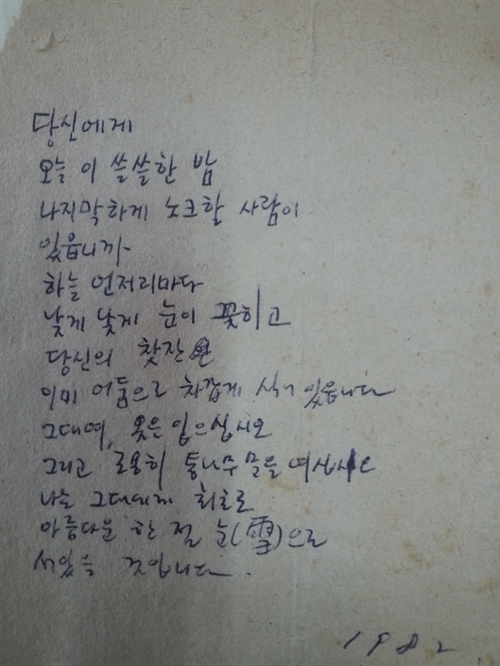 당신에게
오늘 이 쓸쓸한 밤
나지막하게 노크할 사람이
있읍니까
하늘 언저리마다
낮게 낮게 눈이 꽃히고
당신의 찻잔은
이미 어둠으로 차갑게 식어 있읍니다
그대여, 옷은 입으십시오
그리고 조용히 통나무 문을 여십시오
나는 그대에게 최초로
아름다운 한 점 눈(雪)으로
서있을 것입니다.
1982